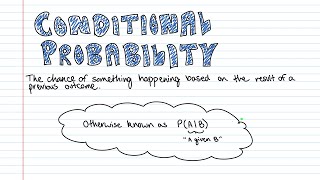 CONDITIONAL
PROBABILITY
The chance of something happening based on the result of a
previous outcome.
Otherwise known as P(A|B)
"A given B"